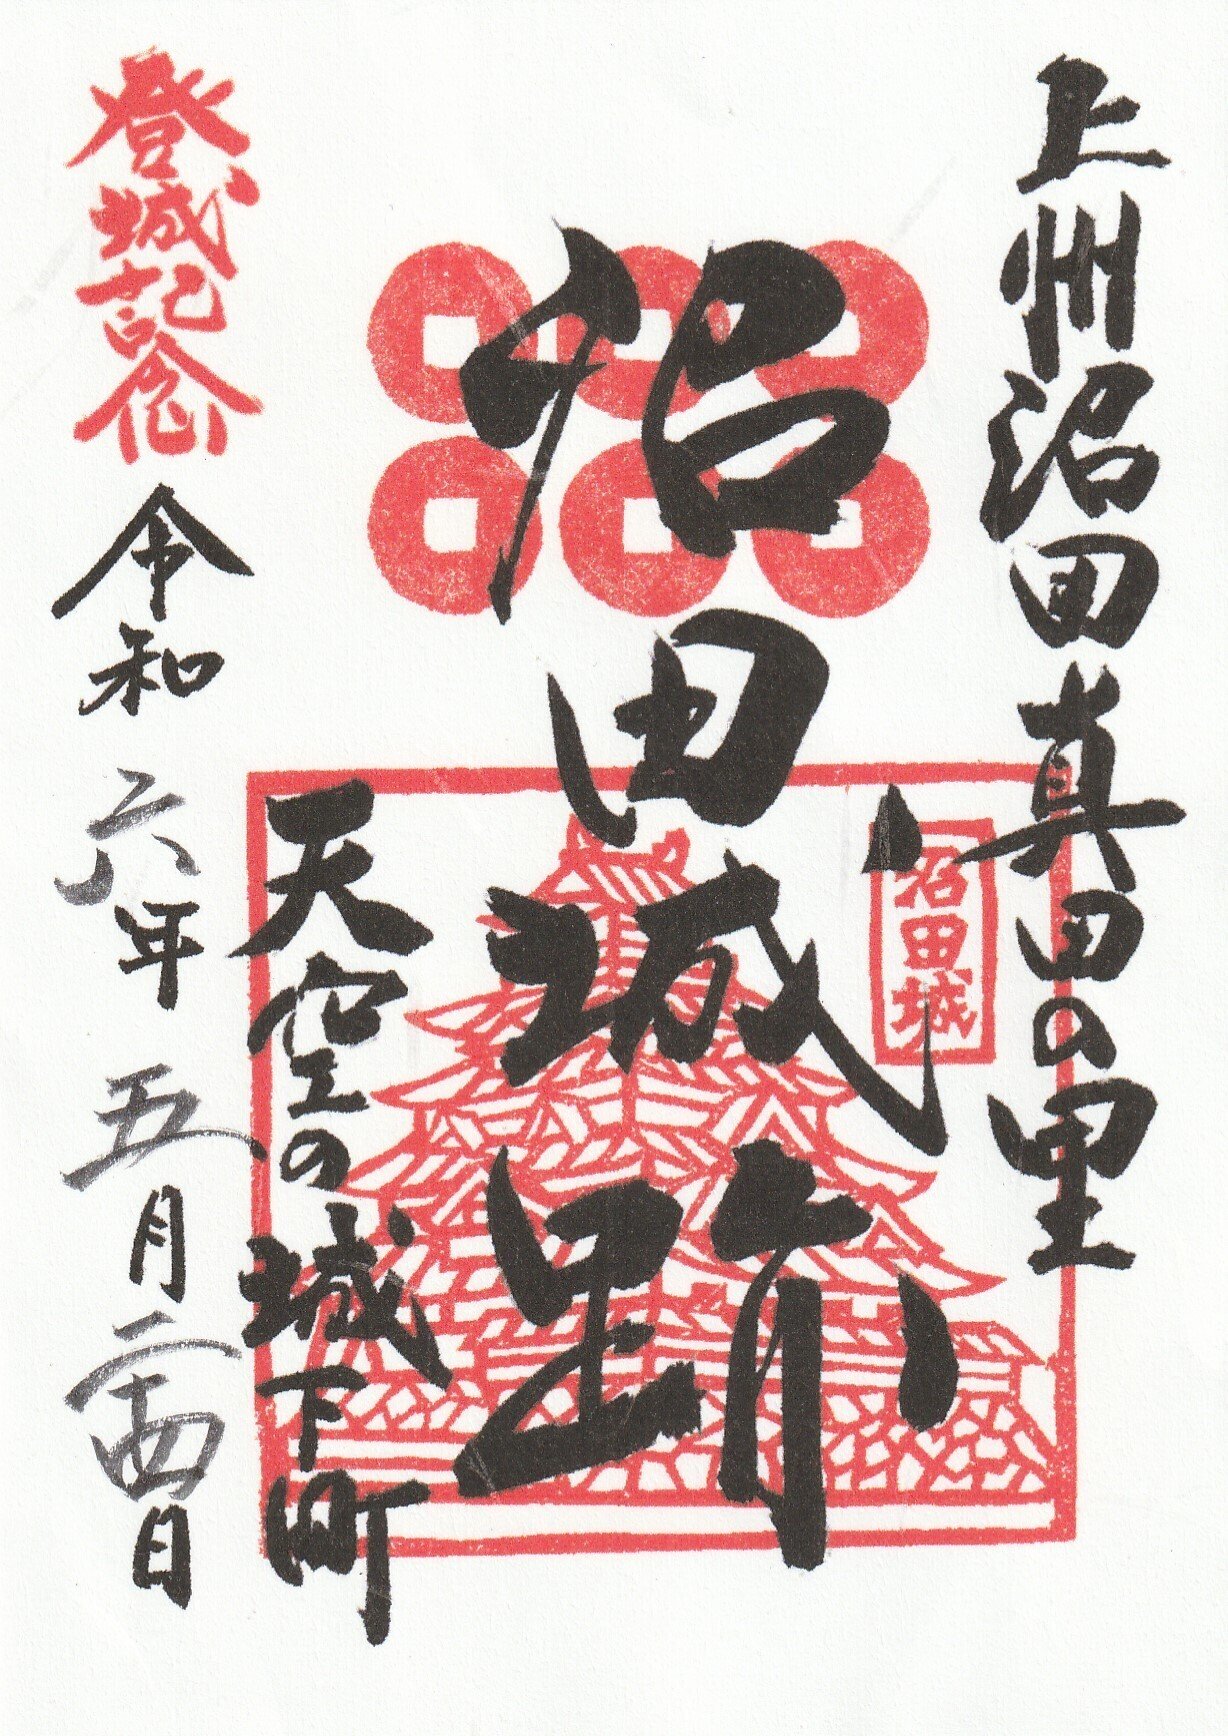 上州沼田真田の里
沼田城
沼田城跡
天空の城下町
登城記念
令和六年五月二十四日